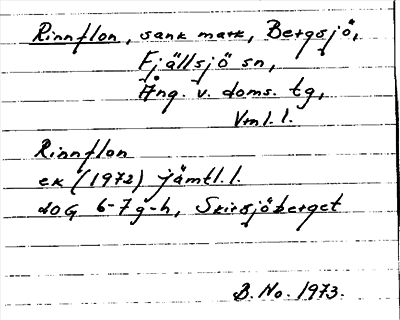 Rinnflon, sank mark, Bergsjö,
Fjällsjö sn,
Ång. v. doms. tg,
Vml. l.
Rinnflon
ek (1972) jämtl. l.
dOG 6-7 g-h, Skirsjöberget
B. No. 1973.